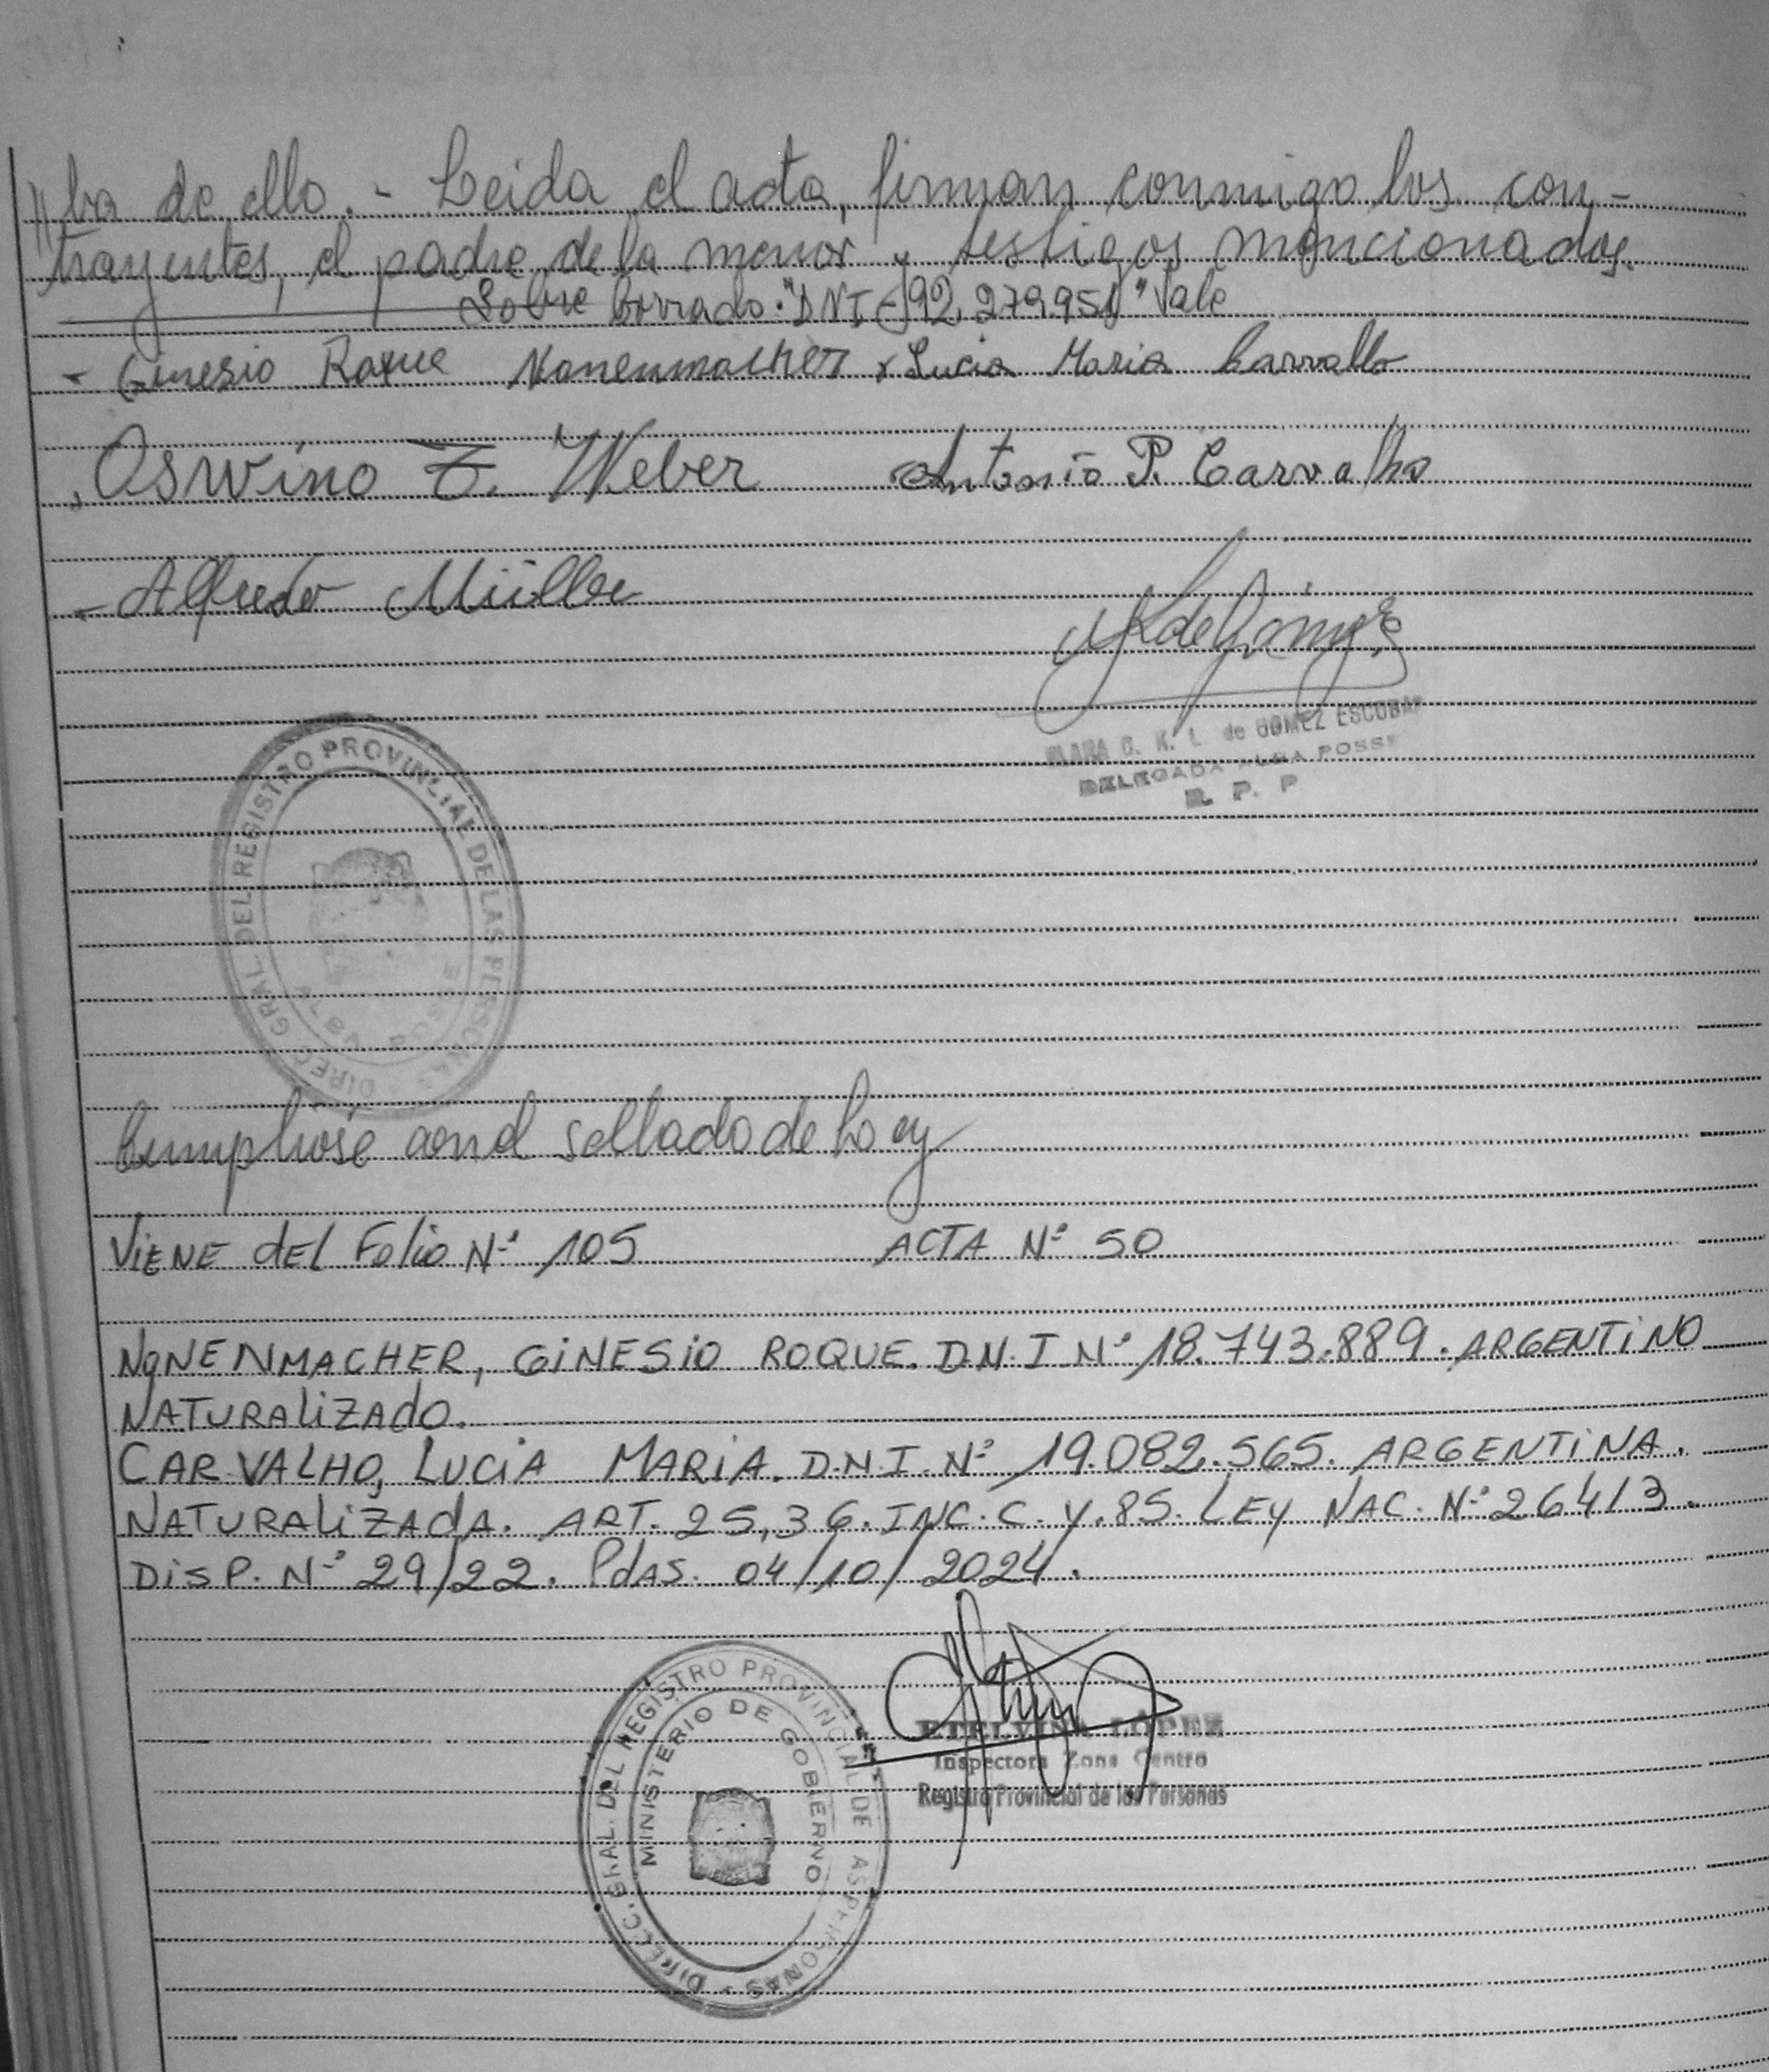 //ba de ello.- Leida el acta, firman conmigo los con-
trayentes, el padre de la menor y testigos mencionados.
Sobre borrado: "DNI-92.279.951" Vale
- Ginesio Roque Nonenmacher x Lucia Maria Carvallo
Oswino F. Weber Antonio P. Carvalho
- Alfredo Müller
C. K. L. de GOMEZ ESCOBAR
DELEGADA ALBA POSSE
R. P. P
DIRECC GRAL. DEL REGISTRO PROVINCIAL DE LAS PERSONAS
ALBA POSSE
Cumpliose con el sellado de ley
ViENE dEL Folio N.º 105 ACTA Nº 50
NONENMACHER, GiNESiO ROQUE. D.N.I Nº 18.743.889. ARGENTiNO
NATURALiZAdO.
CARVALHO, LUCiA MARiA. D.N.I. Nº 19.082.565. ARGENTiNA.
NATURALiZAdA. ART. 25,36. INC. C. Y. 85. LEY NAC. Nº 26413.
DiSP. Nº 29/22. PdAS. 04/10/2024.
DIRECC. GRAL. DEL REGISTRO PROVINCIAL DE LAS PERSONAS
MINISTERIO DE GOBIERNO
ETELVINA LOPEZ
Inspectora Zona Centro
Registro Provincial de las Personas